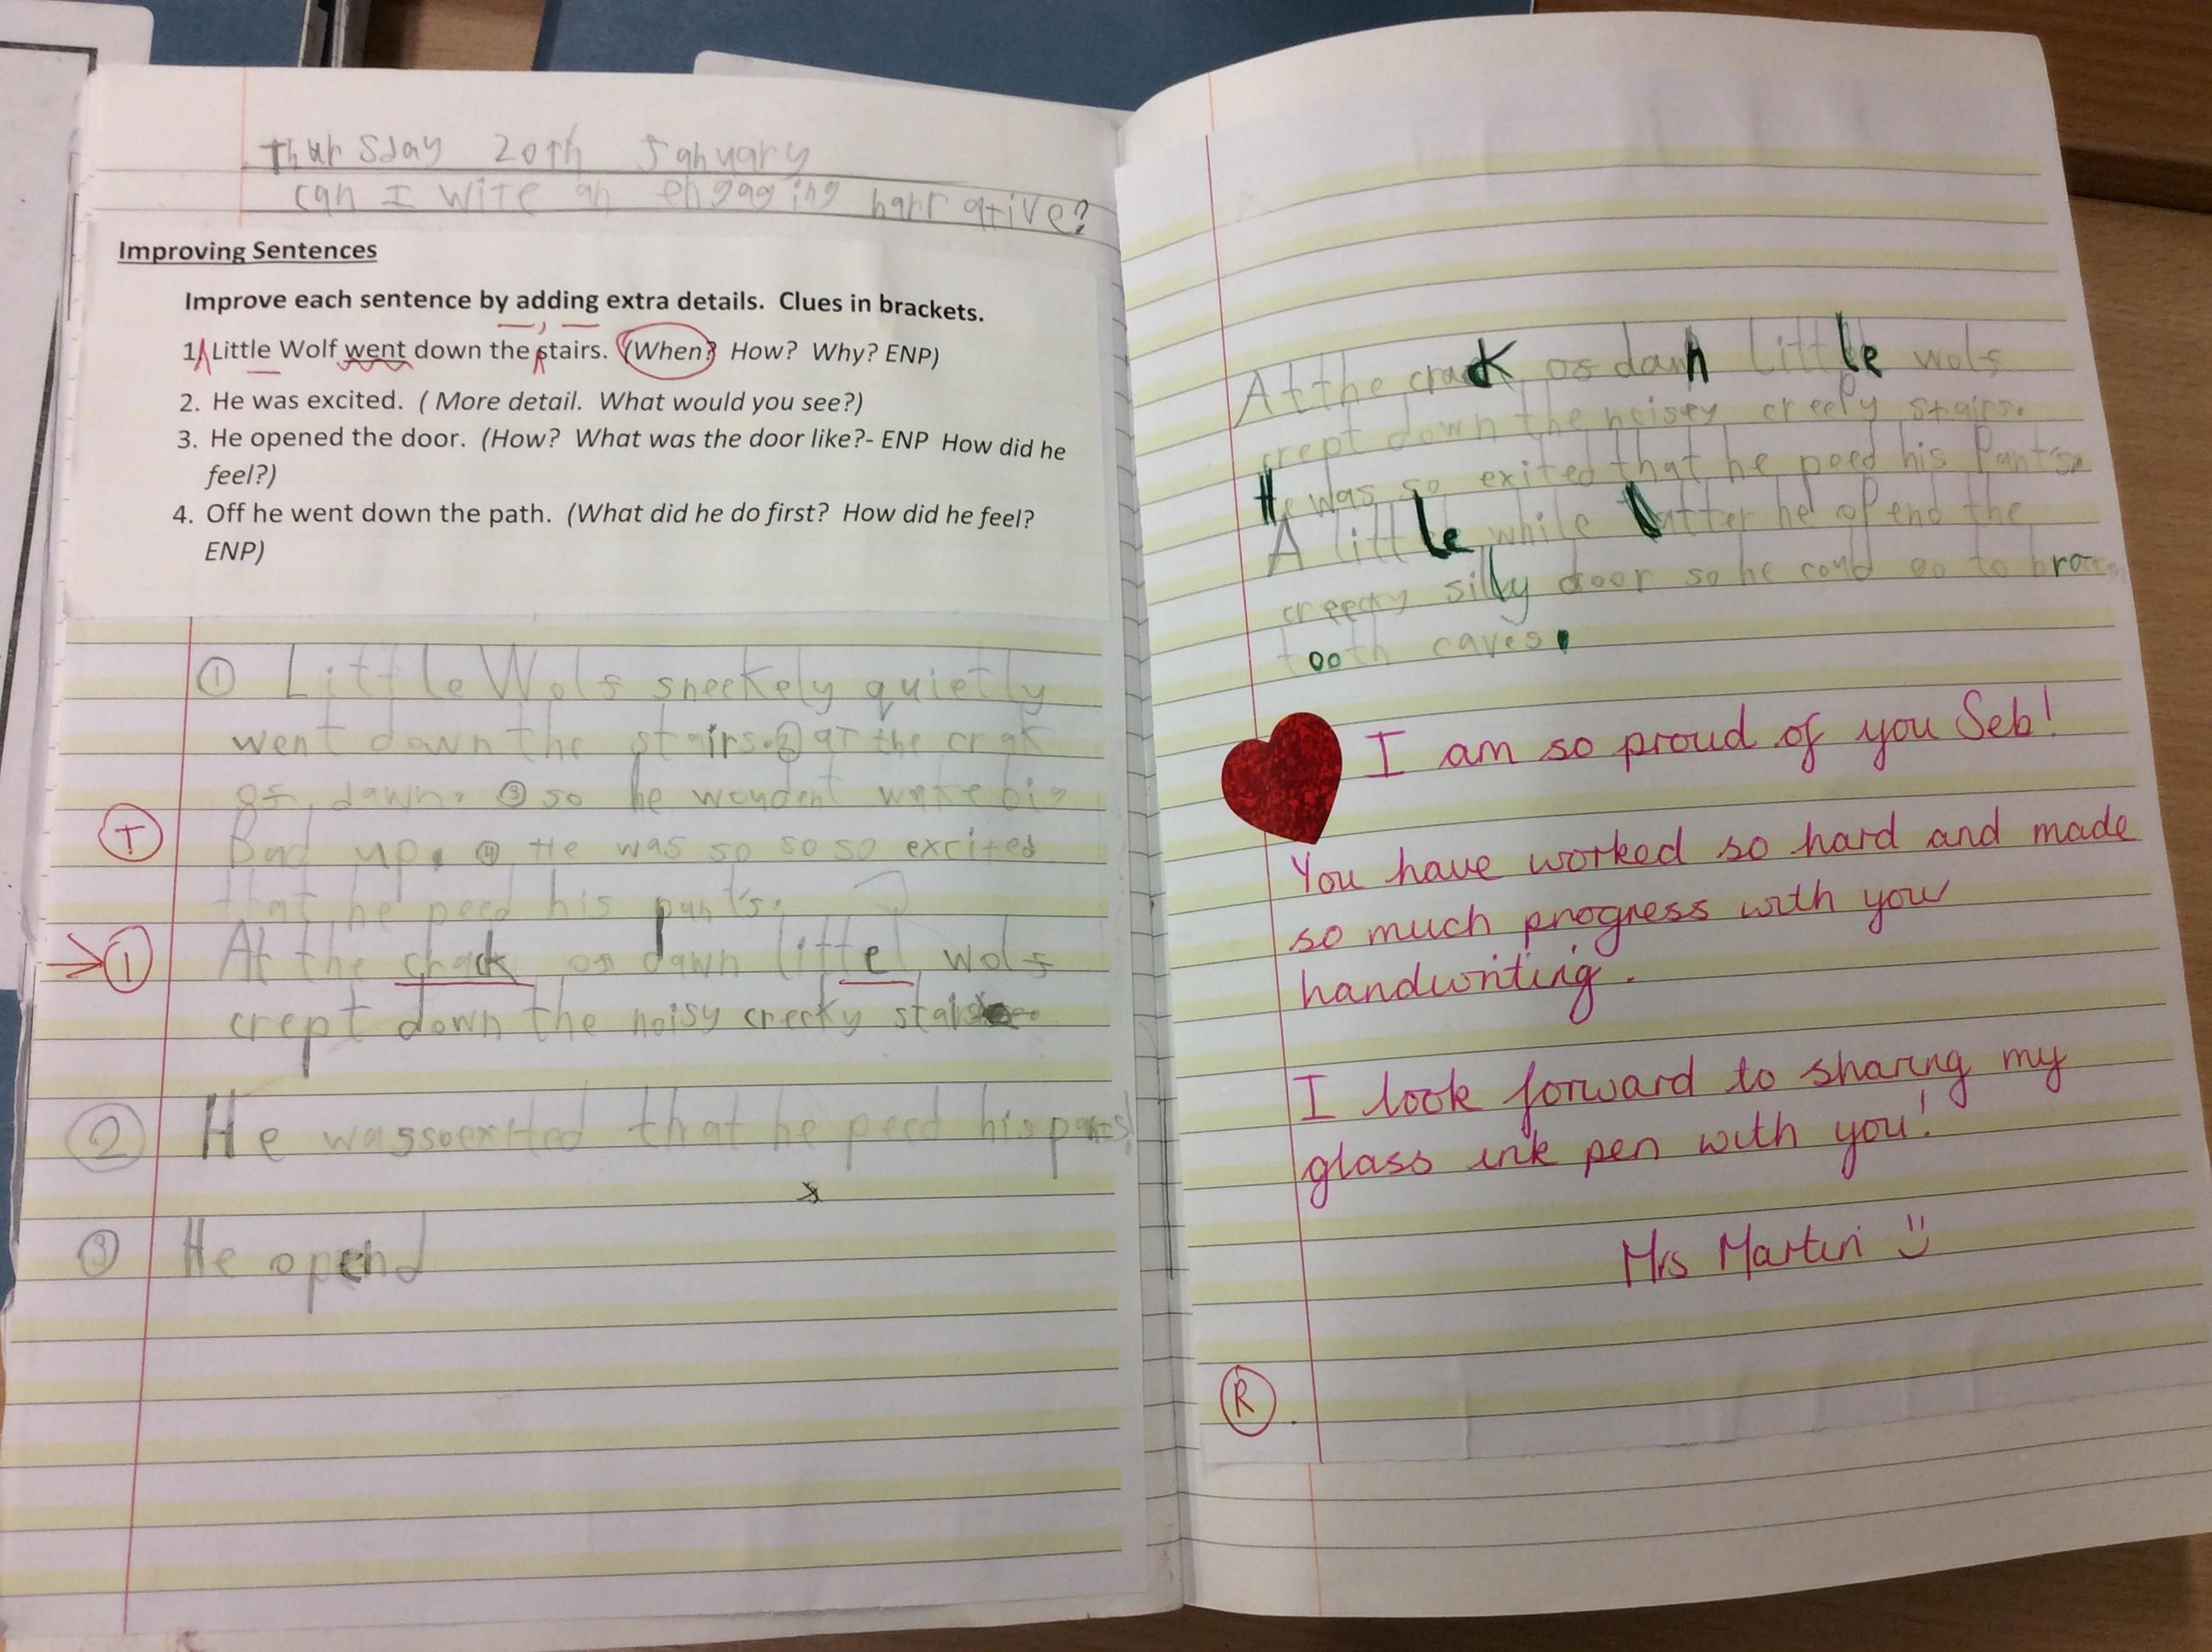 Thursday 20th January
can I wite an engaging narrative?
Improving Sentences
Improve each sentence by adding extra details. Clues in brackets.
1. Little Wolf went down the stairs. (When? How? Why? ENP)
2. He was excited. ( More detail. What would you see?)
3. He opened the door. (How? What was the door like?- ENP How did he
feel?)
4. Off he went down the path. (What did he do first? How did he feel?
ENP)
① Little Wols sneekely quietly
went down the stairs. ② at the crak
of dawn. ③ so he woudent wake big
T
Bad up. ④ He was so so so excited
that he peed his pants.
① At the crack of dawn little wols
crept down the noisy creeky
② He was so exited that he peed his pants!
③ He opend
At the crack os dawn Little wols
crept down the noisey creeky stairs.
He was so exited that he peed his Pants.
A little while latter he opend the
creeky silly door so he could go to
tooth caves.
I am so proud of you Seb!
You have worked so hard and made
so much progress with you
handwriting.
I look forward to sharing my
glass ink pen with you!
Mrs Martin
R